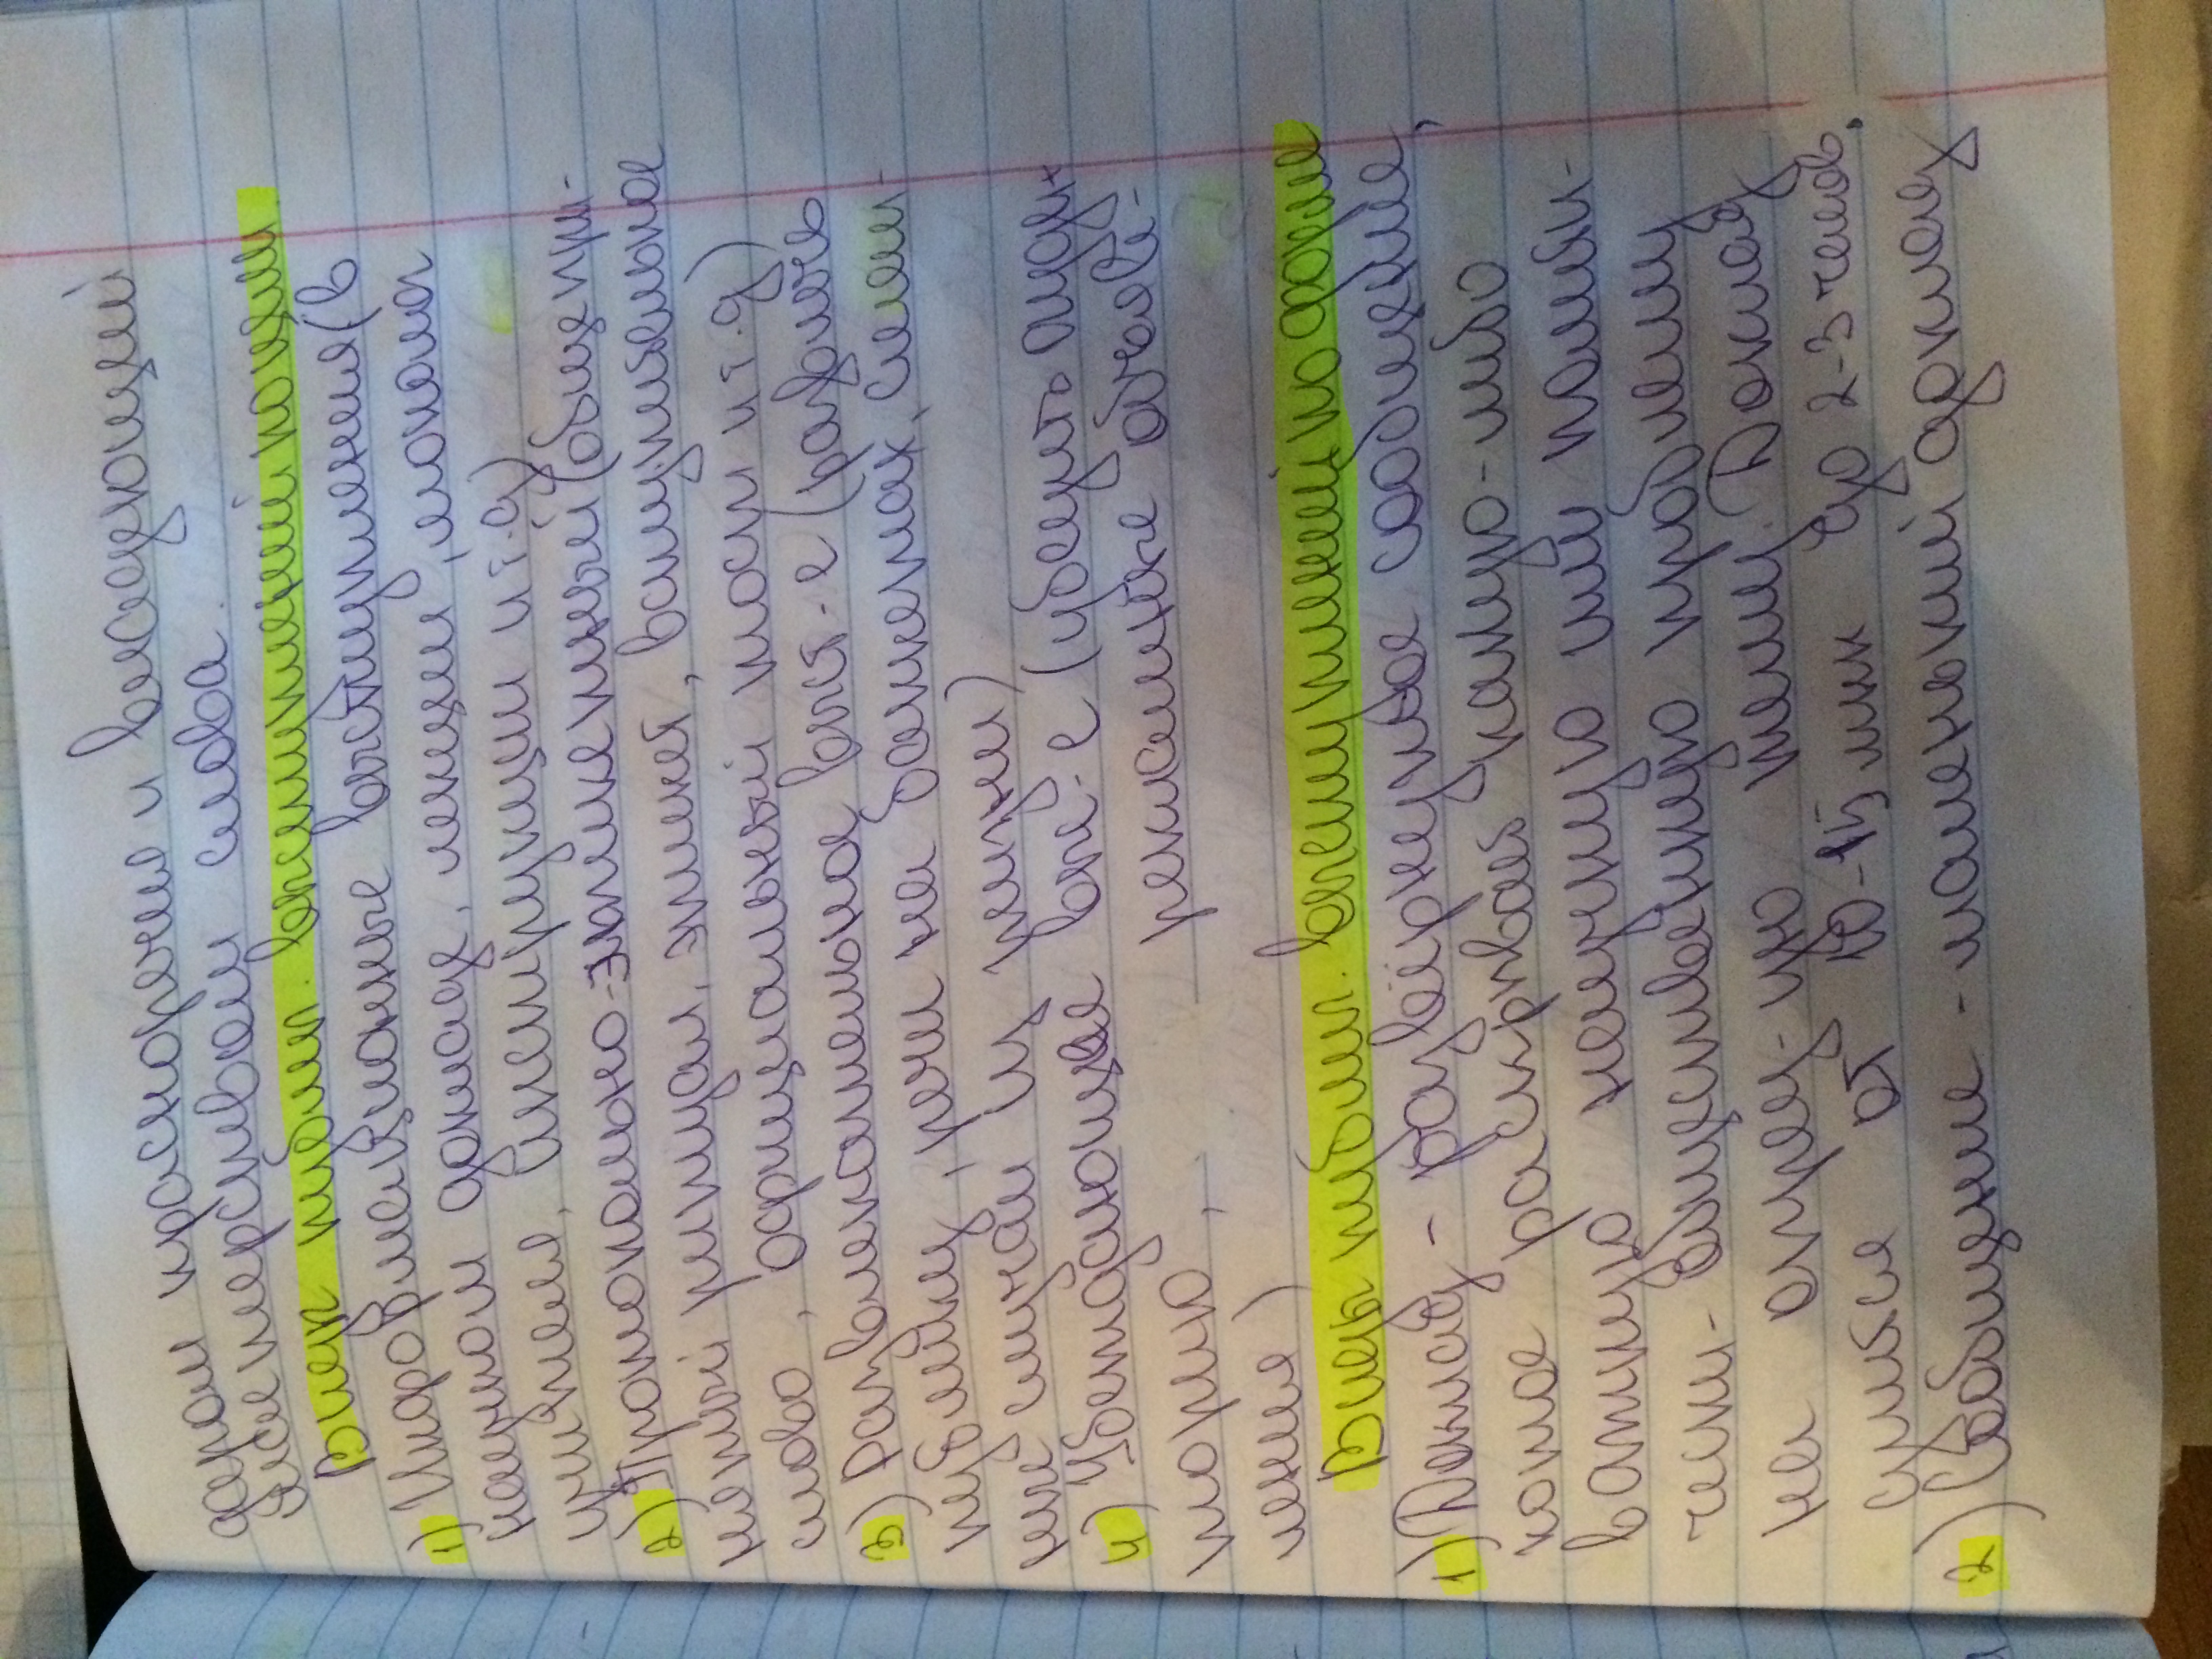 даром красноречия и владеющий
мастерством слова.
Виды публич. выступлений по цели
1) Информационные выступления (в
научном докладе, лекции, монолог
учителя, инструкции и т.д)
2) Протокольно-этикетный (общепри-
нятый ритуал, этикет, вступительное
слово, официальный тост и т.д)
3) Развлекательное выст-е (развлечь
публику, речи на банкетах, смеш-
ные случаи из жизни)
4) Убеждающее вы-е (убедить ауди-
торию, рекламные объяв-
ления)
Виды публич. выступлений по форме
1) Доклад - развёрнутое сообщение,
котое раскрывает какую-либо
важную научную или полити-
чески-общественную проблему
на опред-ую тему. Доклад
длится от 10-15 мин до 2-3 часов.
2) Сообщение - маленький доклад